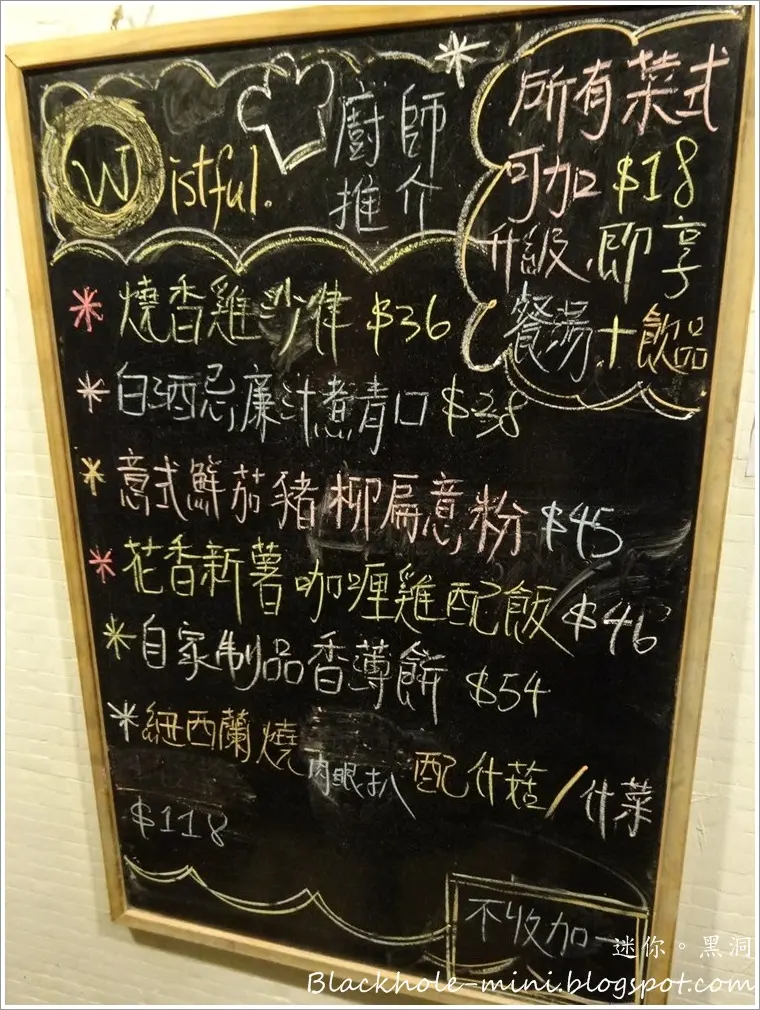 Wistful.
廚師
推介
所有菜式
可加 $18
升級,即享
餐湯+飲品
* 燒香雞沙律 $36
* 白酒忌廉汁煮青口 $38
* 意式鮮茄豬柳扁意粉 $45
* 花香新薯咖喱雞配飯 $46
* 自家制品香薄餅 $54
* 紐西蘭燒肉眼扒 配什菇/什菜
$118
不收加一
迷你。黑洞
Blackhole-mini.blogspot.com